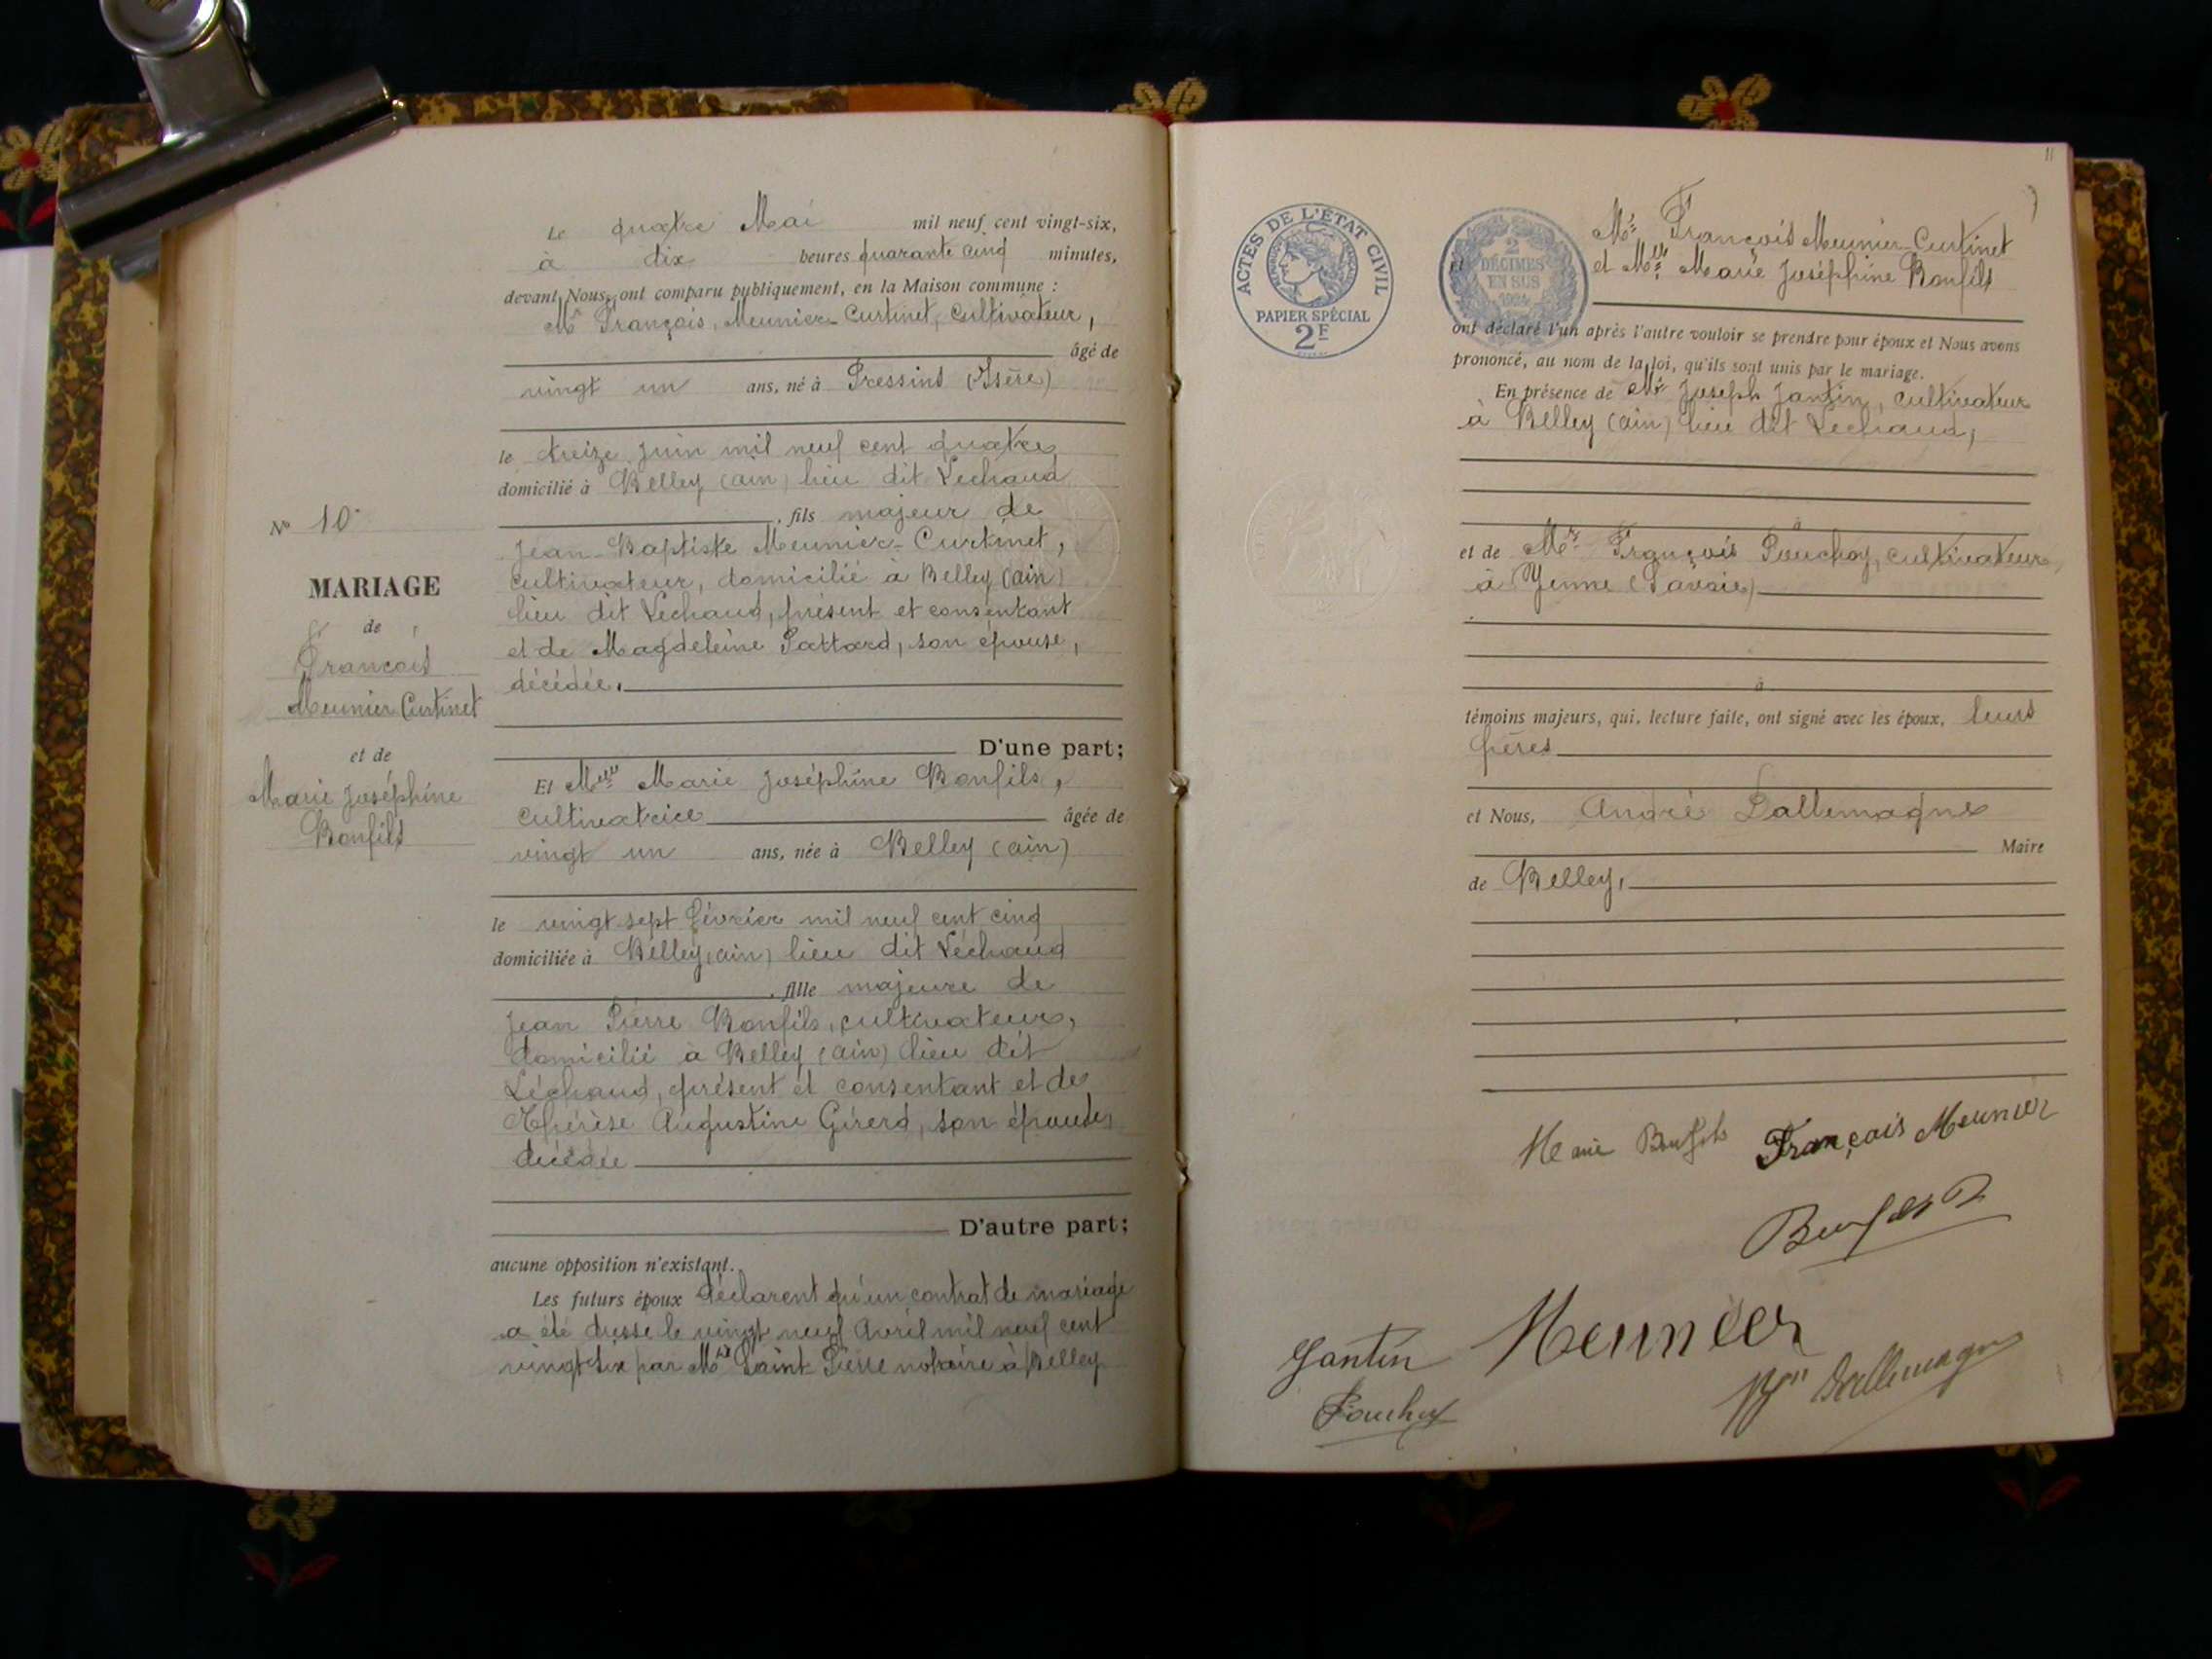 Le quatre Mai mil neuf cent vingt-six,
à dix heures quarante cinq minutes,
devant Nous, ont comparu publiquement, en la Maison commune :
Mr François, Meunier-Curtinet, cultivateur,
âgé de
vingt un ans, né à Pressins (Isère)
le treize juin mil neuf cent quatre
domicilié à Belley (ain) lieu dit Lechaud
, fils majeur de
Jean-Baptiste Meunier-Curtinet,
cultivateur, domicilié à Belley (ain)
lieu dit Lechaud, présent et consentant
et de Magdeleine Pattard, son epouse,
décédée.
D'une part;
Et Melle Marie Joséphine Bonfils,
cultivatrice âgée de
vingt un ans, née à Belley (ain)
le vingt-sept février mil neuf cent cinq
domiciliée à Belley (ain) lieu dit Léchaud
, fille majeure de
Jean Pierre Bonfils, cultivateur,
domicilié à Belley (ain) lieu dit
Léchaud, présent et consentant et de
Thérèse Augustine Girerd, son épouse,
décédée
D'autre part;
aucune opposition n'existant.
Les futurs époux déclarent qu'un contrat de mariage
a été dressé le vingt neuf Avril mil neuf cent
vingt six par Me Saint-Pierre notaire à Belley
No 10
MARIAGE
de
François
Meunier Curtinet
et de
Marie Joséphine
Bonfils
11
ACTES DE L'ÉTAT CIVIL
RÉPUBLIQUE FRANÇAISE
PAPIER SPÉCIAL
2F
2
DÉCIMES
EN SUS
Mr François Meunier-Curtinet
et Melle Marie Joséphine Bonfils
ont déclaré l'un après l'autre vouloir se prendre pour époux et Nous avons
prononcé, au nom de la loi, qu'ils sont unis par le mariage.
En présence de Mr Joseph Jantin, cultivateur
à Belley (ain) lieu dit Lechaud,
à
et de Mr François Pouchoy, cultivateur,
à Yenne (Savoie)
à
témoins majeurs, qui, lecture faite, ont signé avec les époux, leurs
pères
et Nous, André Dallemagne
Maire
de Belley,
Marie Bonfils François Meunier
Bonfils
Jantin Meunier
Pouchoy Dallemagne